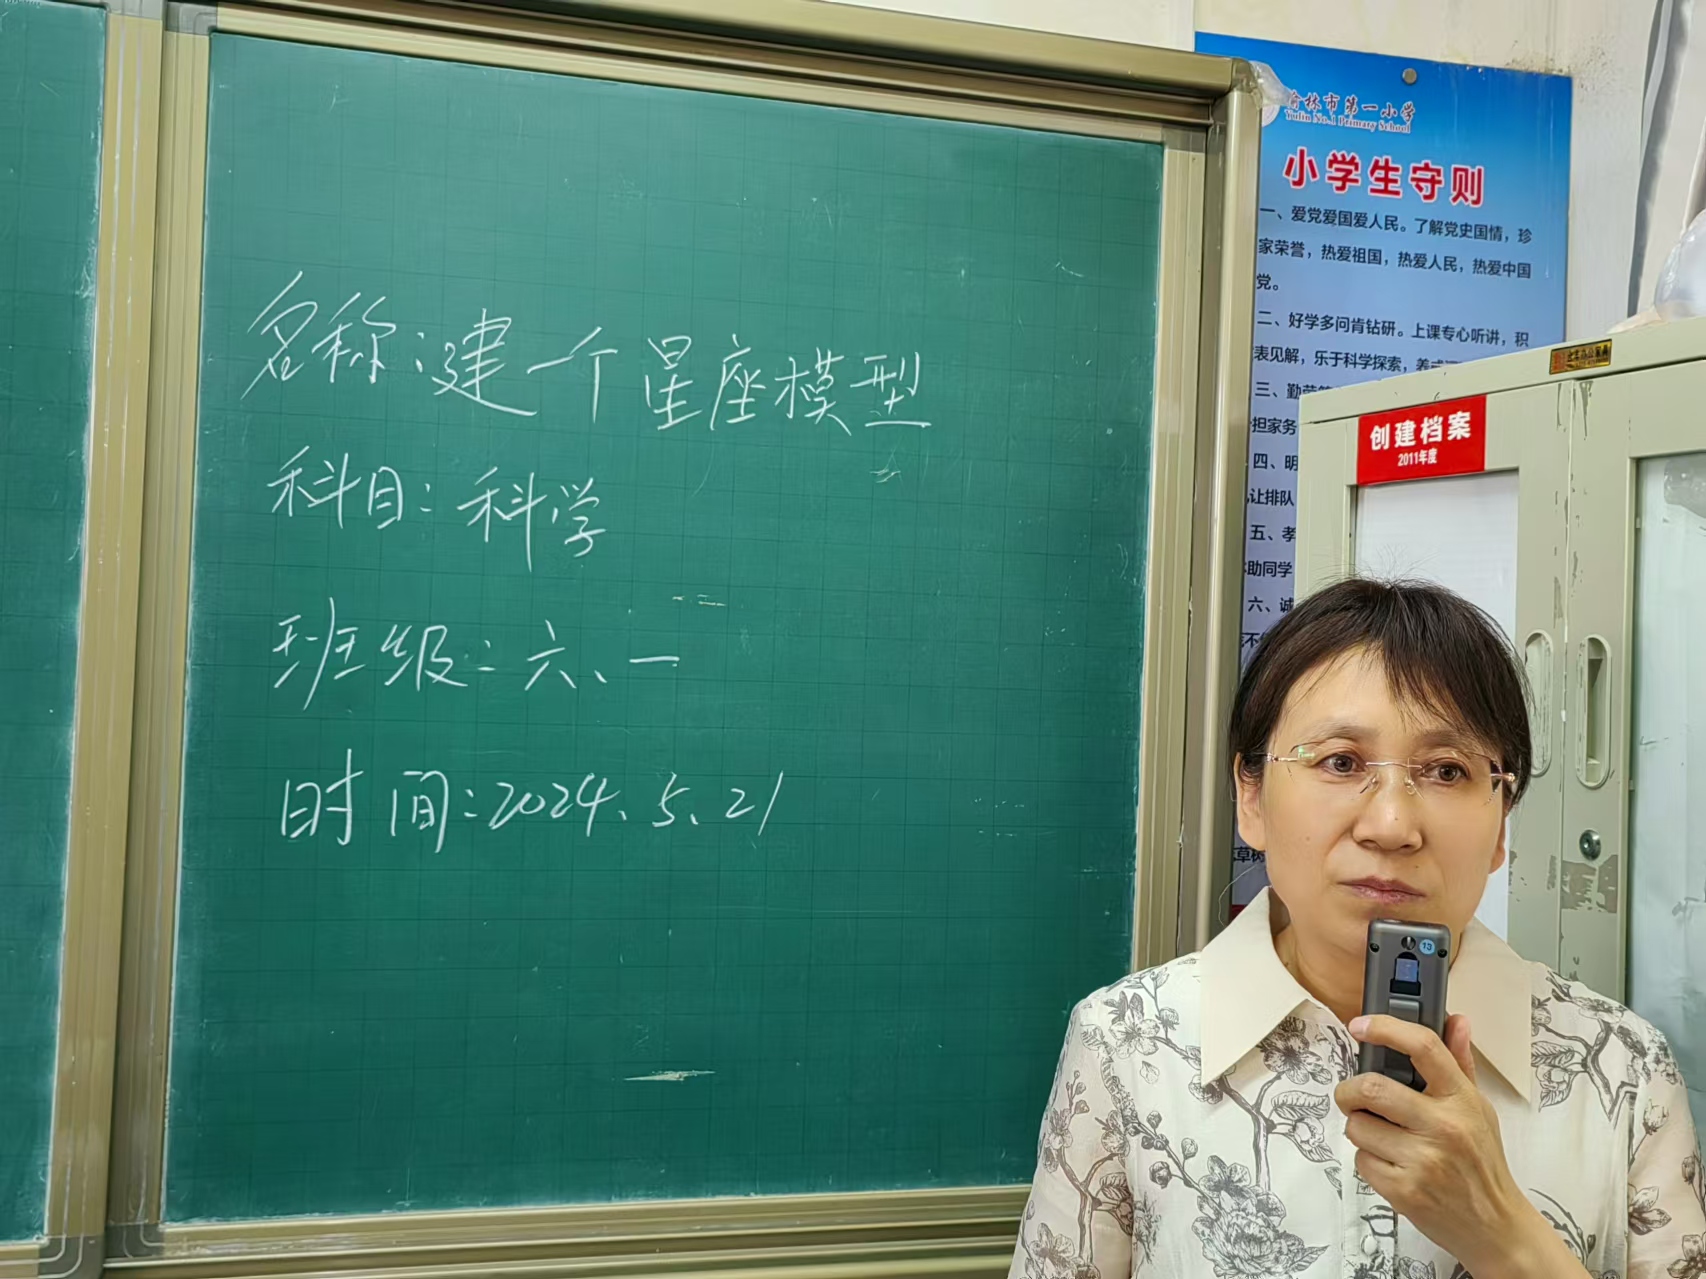 名称:建一个星座模型
科目:科学
班级:六、一
时间:2024.5.21
榆林市第一小学
Yulin No.1 Primary School
小学生守则
一、爱党爱国爱人民。了解党史国情,珍
家荣誉,热爱祖国,热爱人民,热爱中国
党。
二、好学多问肯钻研。上课专心听讲,积
表见解,乐于科学探索,养成
三、勤劳
担家务
四、明
让排队
五、孝
助同学
六、诚
创建档案
2011年度
13